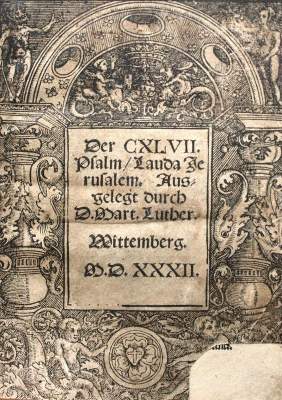 Der CXLVII.
Psalm/Lauda Je
rusalem. Aus-
gelegt durch
D. Mart. Luther.
Wittemberg.
M. D. XXXII.